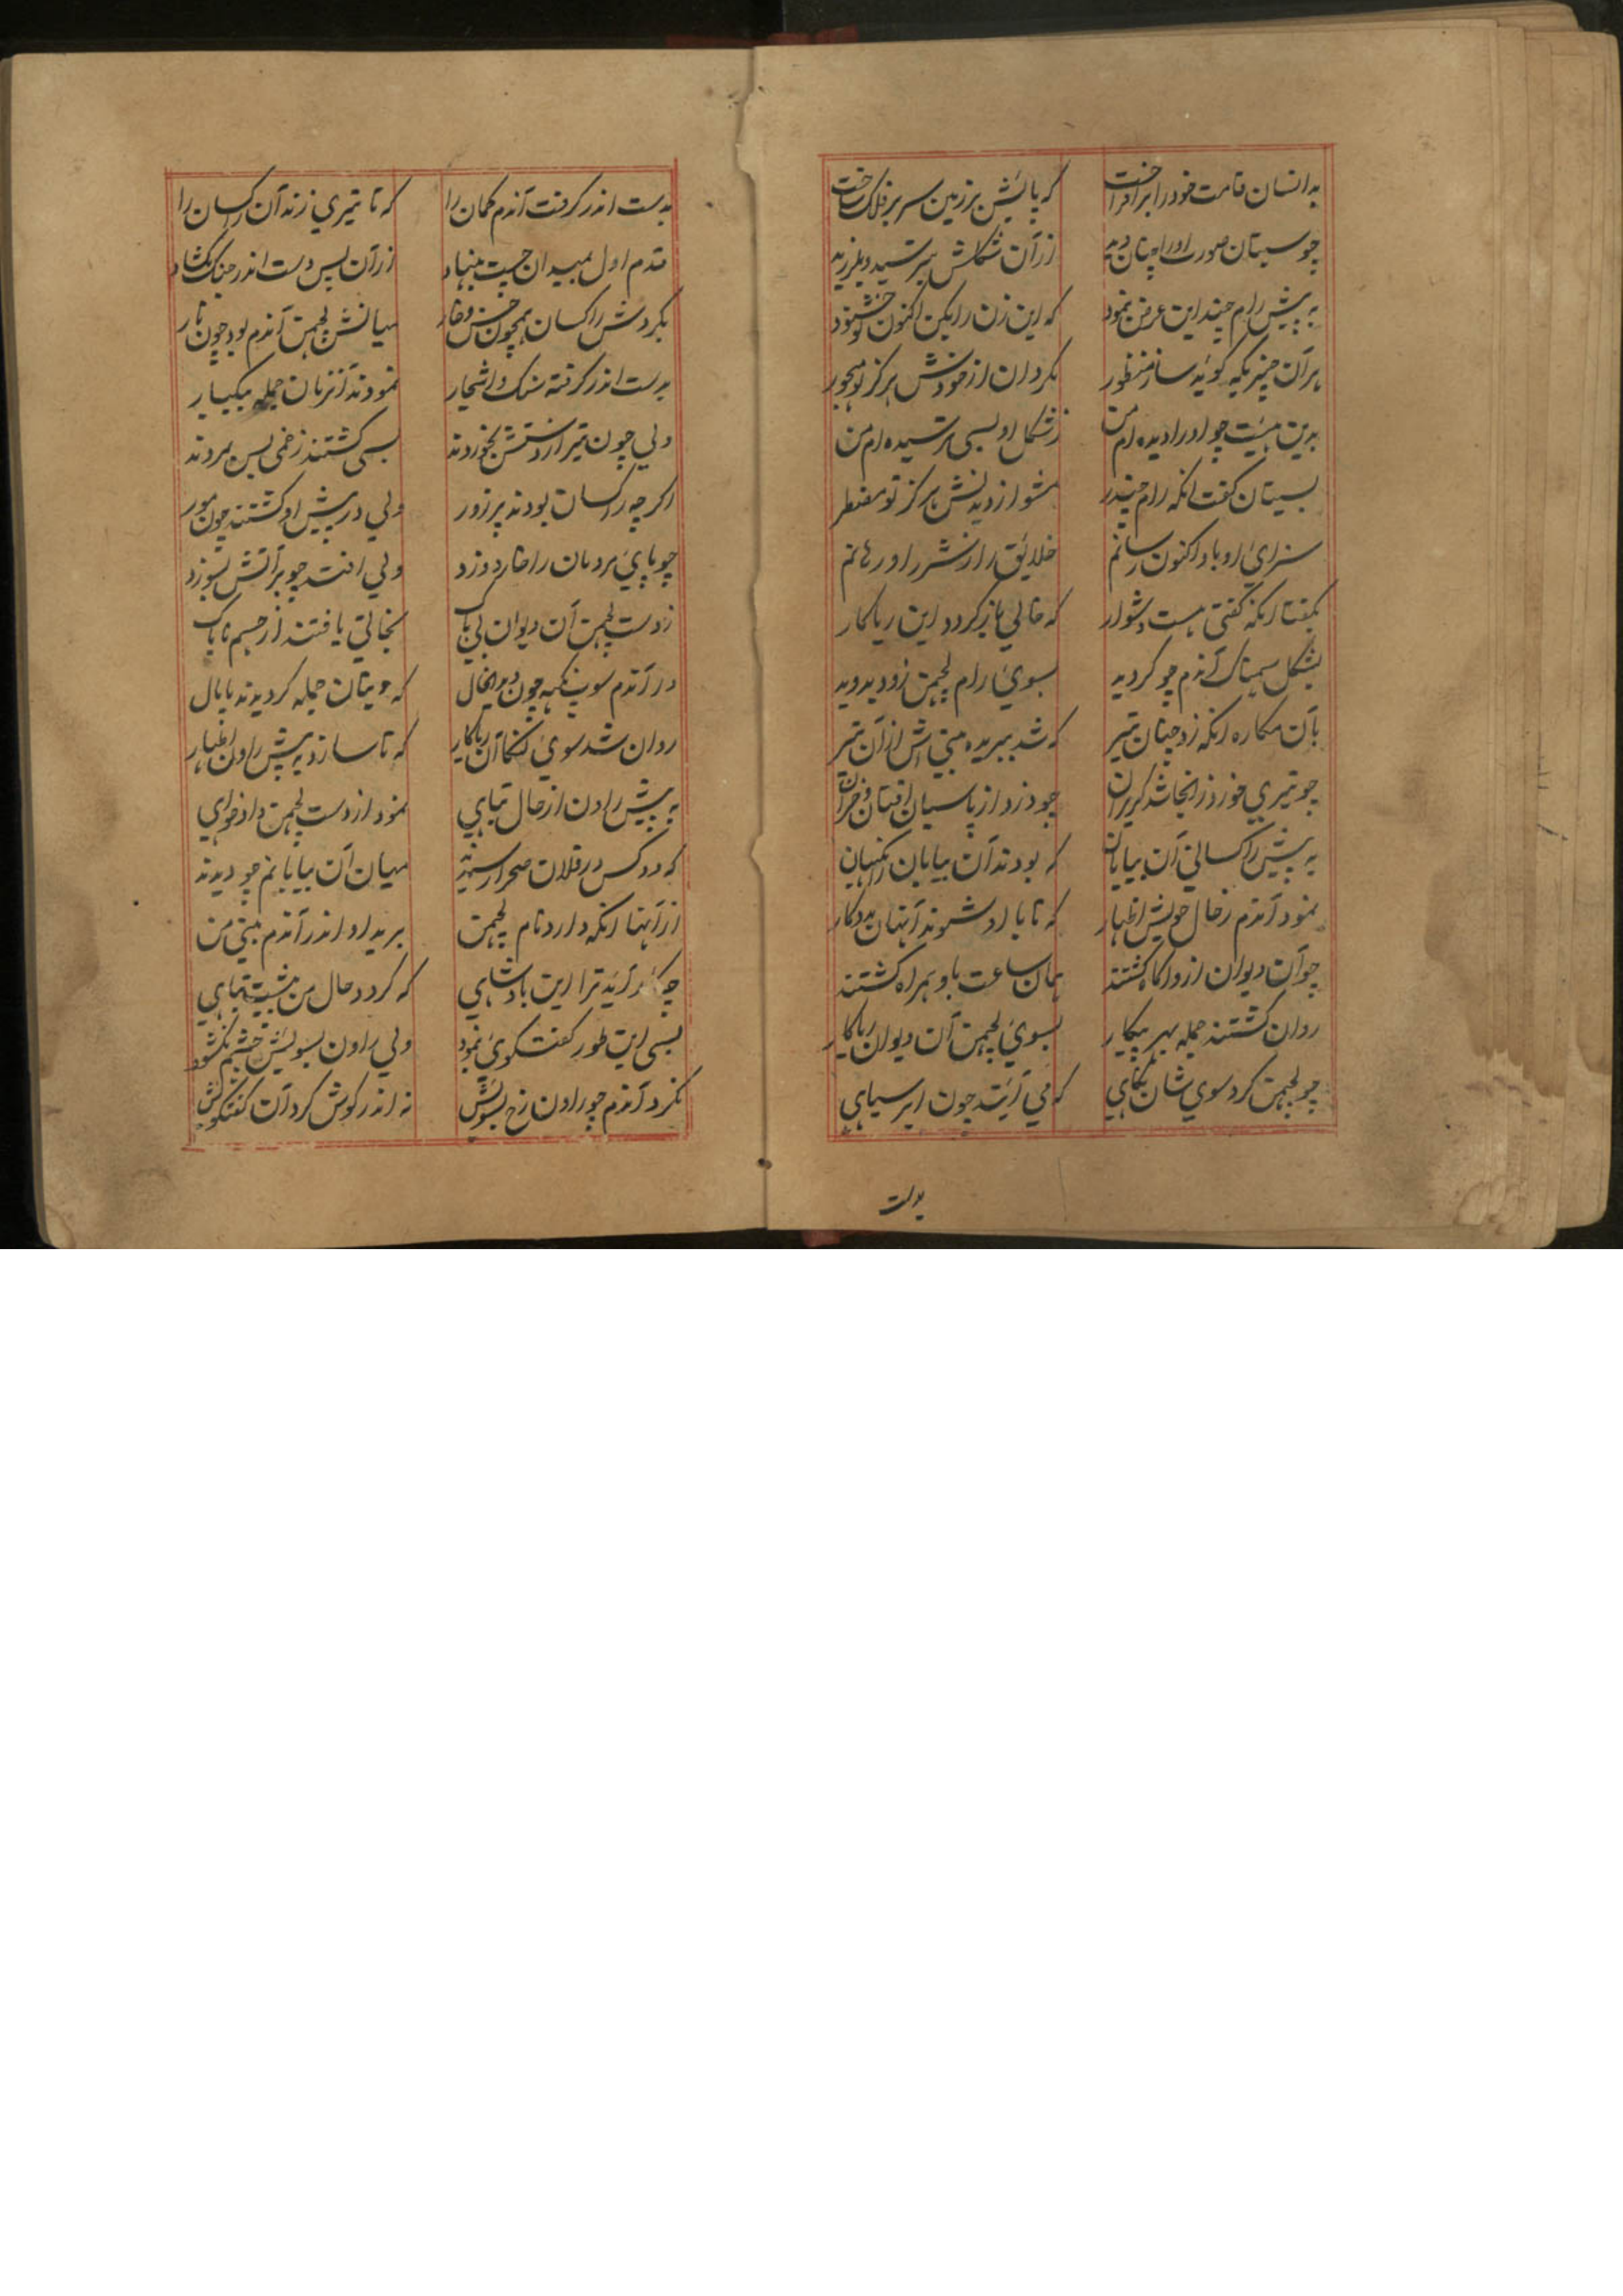 بدانسان قامت خود را برافراخت که پایش بر زمین سر بر فلک ساخت
چو سیتان صورت او را چنان دید از آن شکلش بترسید و بلرزید
به پیش رام چند این عرض نمود که این زن را بکن اکنون تو خشنود
بر آن چیزیکه گوید ساز منظور مگردان از خودش هرگز تو مهجور
بدین هیئت چو او را دیده‌ام من ز شکل او بسی ترسیده‌ام من
بسیتان گفت آنکه رام چندر مشو از دیدنش هرگز تو مضطر
سزای او باو اکنون رسانم خلایق را ز شر او رهانم
بگفتا آنکه گفتی هست دشوار که خالی باز گردد این ریاکار
بشکل سهمناک آندم چو گردید بسوی رام لچمن زود بدوید
بآن مکاره آنکه زد چنان تیر که شد ببریده بینی‌اش از آن تیر
چو تیری خورد زانجا شد گریزان چو دزد از پاسبان افتان و خیزان
به پیش راکسان آن بیابان که بودند آن بیابان را نگهبان
نمود آندم ز حال خویش اظهار که تا با او شوند آنان مددکار
چو آن دیوان ازو آگاه گشتند همان ساعت باو همراه گشتند
روان گشتند جمله بهر پیکار بسوی لچمن آن دیوان ریاکار
چو لچمن کرد سوی شان نگاهی که می آیند چون ابر سیاهی
بدست
بدست اندر گرفت آندم کمان را که تا تیری زند آن راکسان را
قدم اول بمیدان چست بنهاد از آن پس دست اندر جنگ بگشاد
بگردش راکسان همچون خس و خار میانش لچمن آندم بود چون نار
بدست اندر گرفته سنگ و اشجار نمودند آنزمان حمله بیکبار
ولی چون تیر از دستش بخوردند بسی گشتند زخمی بس بمردند
اگر چه راکسان بودند پر زور ولی در پیش او گشتند چون مور
چو پای مردمان را خار دوزد ولی افتد چو بر آتش بسوزد
ز دست لچمن آن دیوان بی باک نجاتی یافتند از جسم ناپاک
در آندم سوپنکهه چون دید این حال که دیتان جمله گردیدند پامال
روان شد سوی لنکا آن ریاکار که تا سازد به پیش راون اظهار
به پیش راون از حال تباهی نمود از دست لچمن دادخواهی
که دو کس در فلان صحرا رسیدند میان آن بیابانم چو دیدند
از آنها آنکه دارد نام لچمن برید او اندر آندم بینی من
چه کار آید ترا این بادشاهی که گردد حال من پیشت تباهی
بسی این طور گفت گوی نمود ولی راون بسویش چشم نگشود
نکرد آندم چو راون رخ بسویش نه اندر گوش کرد آن گفتگویش